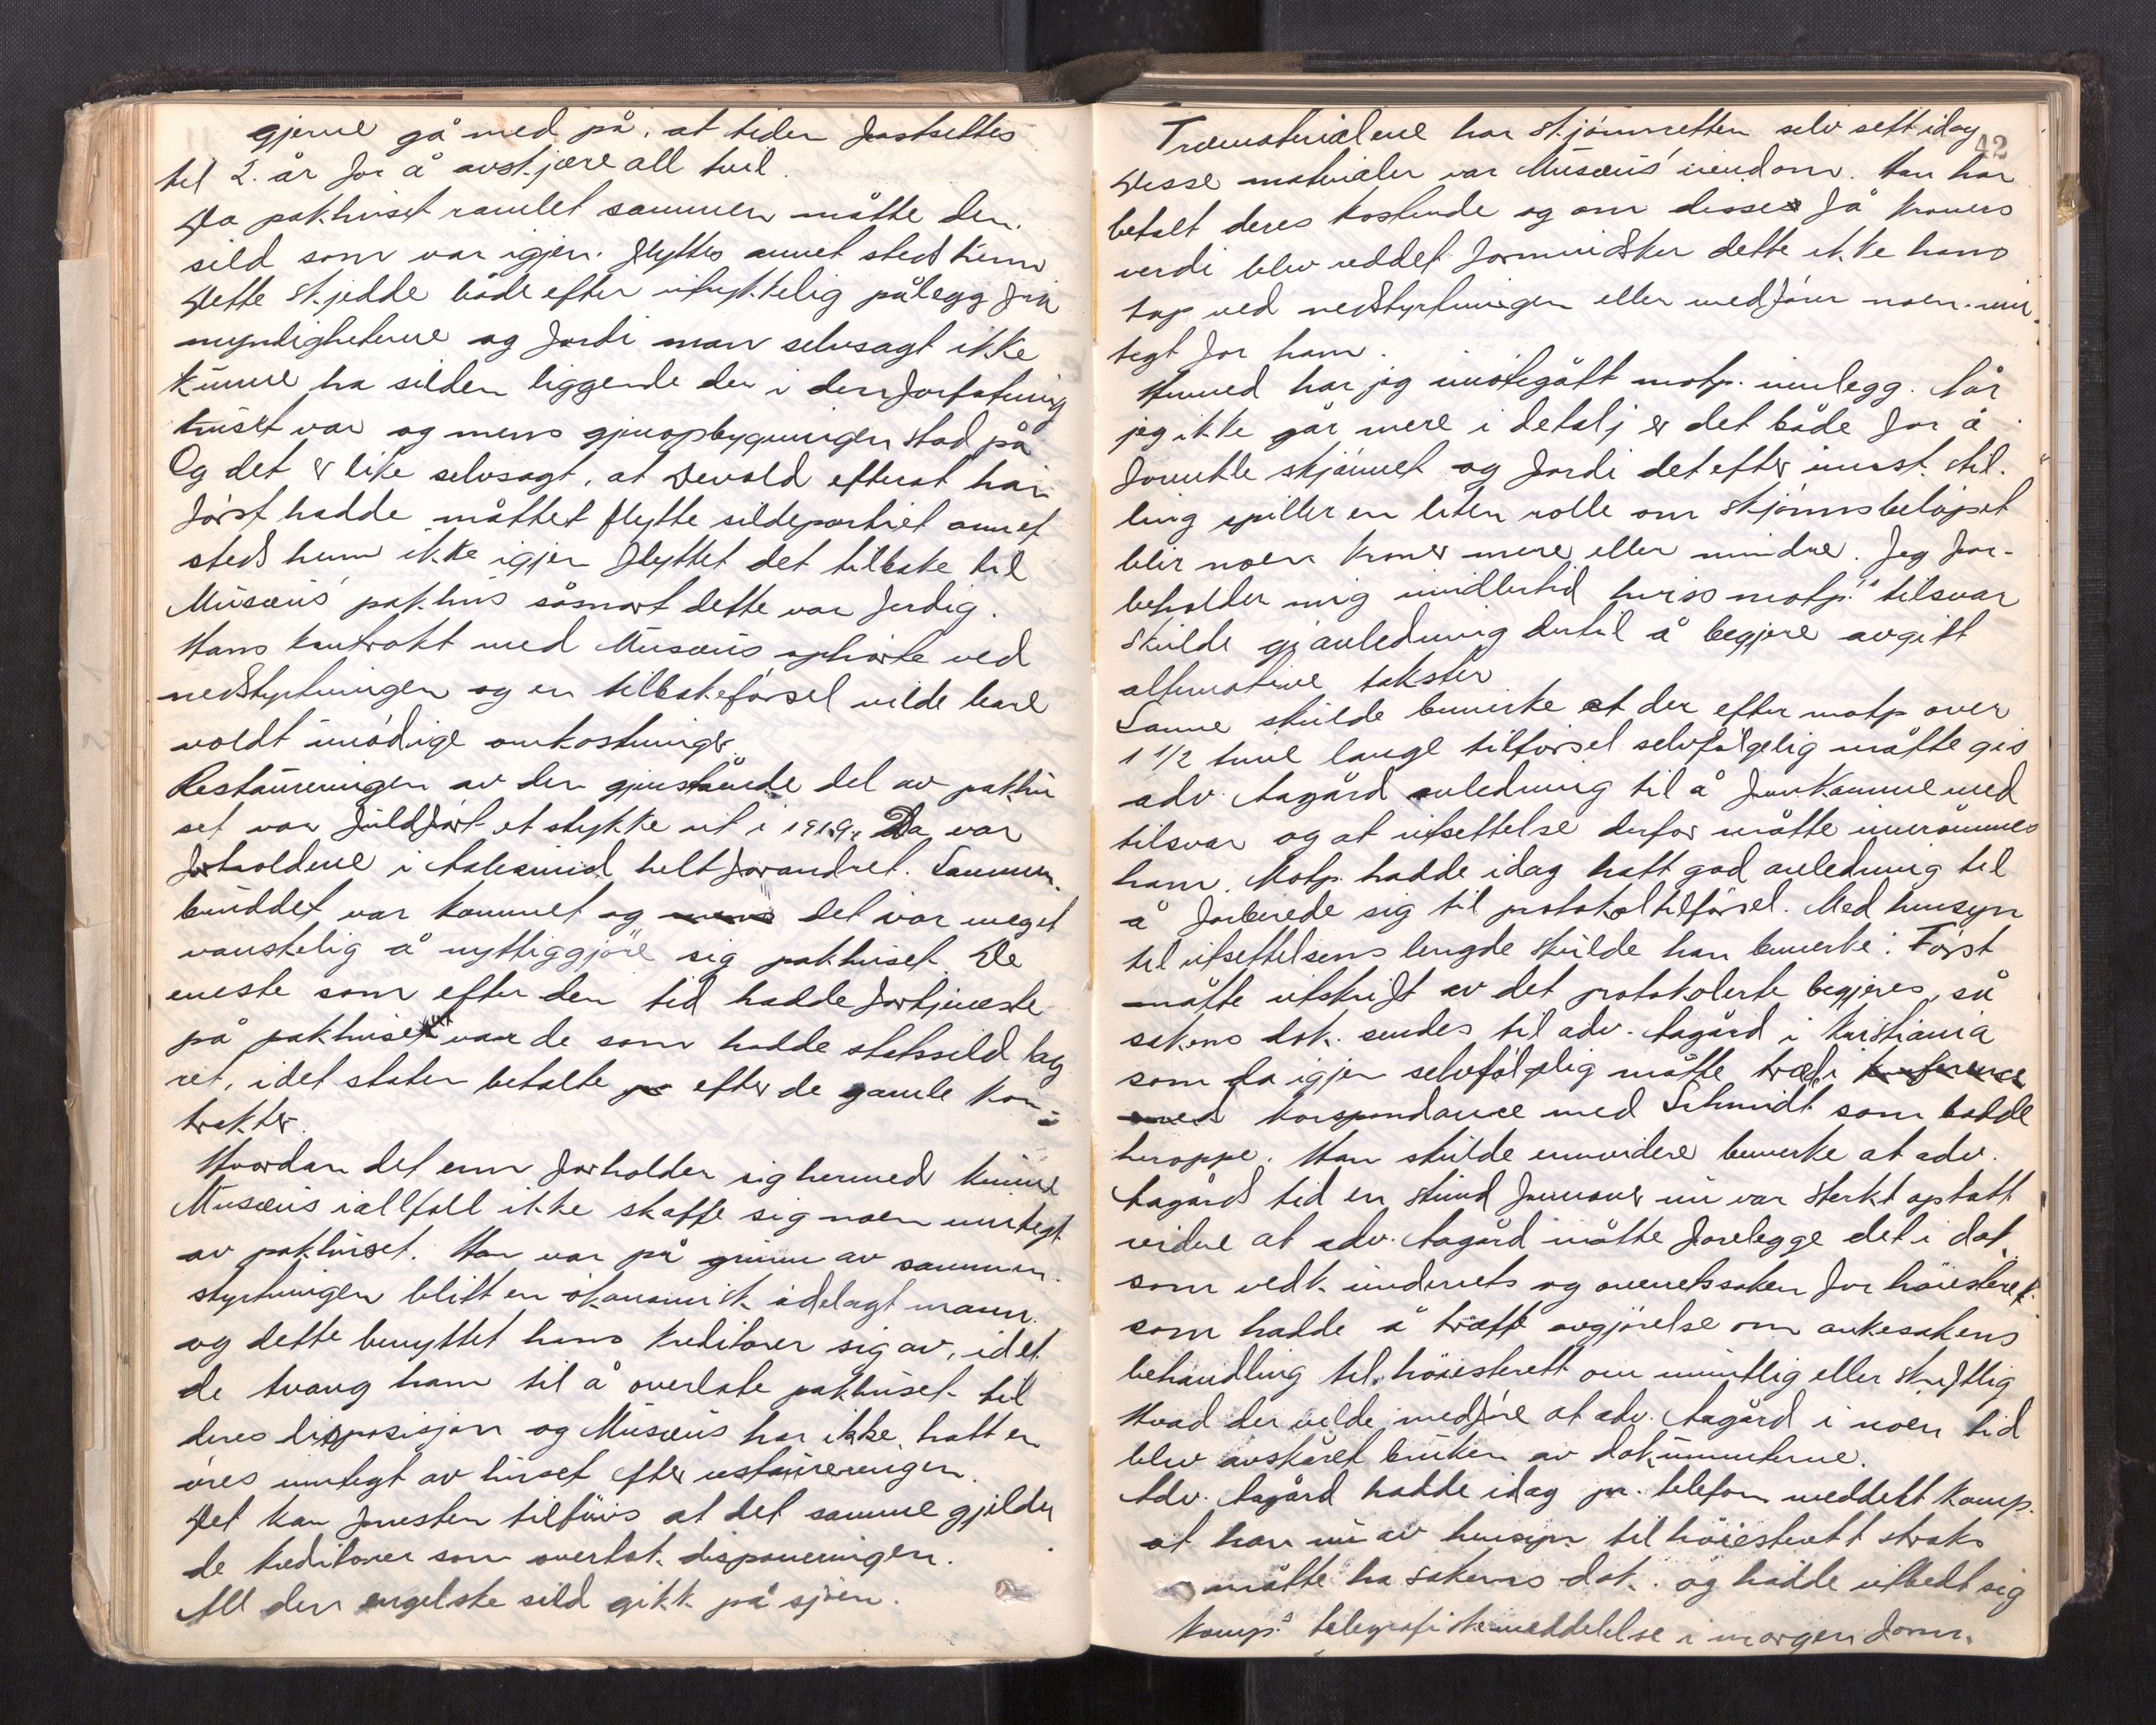 gjerne gå med på, at tiden fastsettes
til 2. år for å avskjære all tvil.
Da pakhuset ramlet sammen måtte den
sild som var igjen flyttes annet steds hen
Dette skjedde både efter uttrykkelig pålegg fra
myndighetene og fordi man selvsagt ikke
kunne ha silden liggende der i den forfatning
huset var og mens gjenopbygningen stod på
Og det er like selvsagt, at Devold efterat han
først hadde måttet flytte sildepartiet annet
steds hen ikke igjen flyttet det tilbake til
Musæus' pakhus såsnart dette var ferdig.
Hans kontrakt med Musæus ophørte ved
nedstyrtningen og en tilbakeførsel vilde bare
voldt unødige omkostninger.
Restaureringen av den gjenstående del av pakhu
set var fuldført et stykke ut i 1919. Da var
forholdene i Aalesund helt forandret. Sammen-
bruddet var kommet og det var meget
vanskelig å nyttiggjøre sig pakhuset. De
eneste som efter den tid hadde fortjeneste
på pakhuset var de som hadde statssild lag
ret, idet staten betalte efter de gamle kon-
trakter.
Hvordan det enn forholder sig hermed kunne
Musæus iallfall ikke skaffe sig noen inntegt
av pakhuset. Han var på grunn av sammen-
styrtningen blitt en økonomisk ødelagt mann
og dette benyttet hans kreditorer sig av, idet
de tvang ham til å overlate pakhuset til
deres disposisjon og Musæus har ikke hatt en
øres inntegt av huset efter restaureringen.
Det kan forresten tilføies at det samme gjelder
de kreditorer som overtok disponeringen.
All den engelske sild gikk på sjøen.
42
Træmaterialene har skjønnretten selv sett idag
Disse materialer var Musæus' eiendom. Han har
betalt deres kostende og om disses få kroners
verdi blev reddet formindsker dette ikke hans
tap ved nedstyrtningen eller medfører noen inn-
tegt for ham.
Hermed har jeg imøtegått motp. innlegg. Når
jeg ikke går mere i detalj er det både for å
forenkle skjønnet og fordi det efter min st. stil-
ling spiller en liten rolle om skjønnsbeløpet
blir noen kroner mere eller mindre. Jeg for-
beholder mig imidlertid hvis motp.s tilsvar
skulde gi anledning dertil å begjere avgitt
alternative takster
Sanne skulde bemerke at der efter motp over
1 1/2 time lange tilførsel selvfølgelig måtte gis
adv. Aagård anledning til å fremkomme med
tilsvar og at utsettelse derfor måtte innrømmes
ham. Motp. hadde idag hatt god anledning til
å forberede sig til protokoltilførsel. Med hensyn
til utsettelsens lengde skulde han bemerke: Først
måtte utskrift av det protokolerte begjeres, så
sakens dok. sendes til adv. Aagård i Kristiania
som da igjen selvfølgelig måtte træ i
korspondance med Schmidt som bodde
heroppe. Han skulde ennvidere bemerke at adv.
Aagårds tid en stund fremover nu var sterkt optatt
videre at adv. Aagård måtte forelegge det i dok
som vedk. underrets og overretssaken for høiesteret
som hadde å træffe avgjørelse om ankesakens
behandling til høiesterett om muntlig eller skriftlig
Hvad der vilde medføre at adv. Aagård i noen tid
blev avskåret bruken av dokumenterne.
Adv. Aagård hadde idag pr. telefon meddelt komp.
at han nu av hensyn til høiesterett straks
måtte ha sakens dok. og hadde utbedt sig
komp.s telegrafiske meddelelse i morgen form.